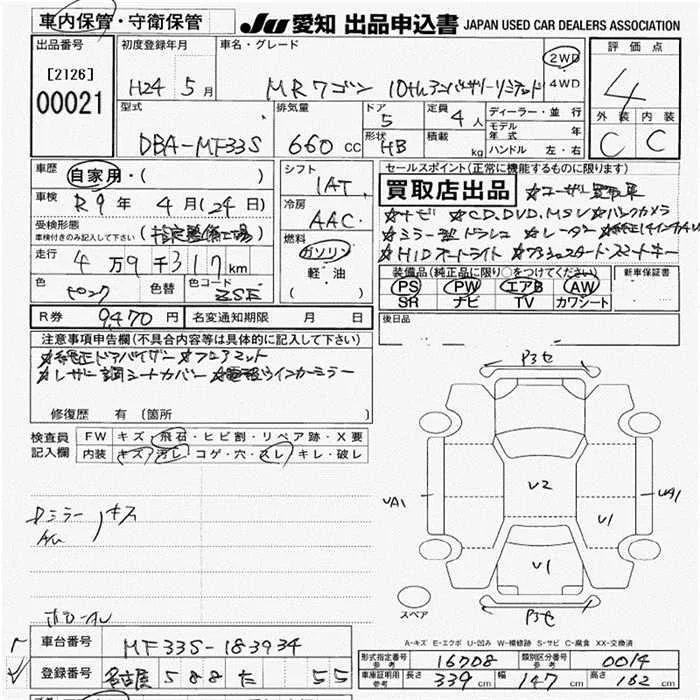 車内保管・守衛保管
Ju 愛知 出品申込書 JAPAN USED CAR DEALERS ASSOCIATION
出品番号
[2126]
00021
初度登録年月
H24 5月
車名・グレード
MRワゴン 10thアニバーサリーリミテッド
2WD
4WD
評価点
4
外装 内装
C C
型式
DBA-MF33S
排気量
660 CC
ドア
5
形状 HB
定員
4人
積載 kg
ディーラー・並行
モデル年式 年
ハンドル 左・右
車歴
自家用・( )
車検
R9年 4月(24日)
受検形態
車検付きのみ記入して下さい (指定整備工場)
走行
4万9千317km
色 色替 色コード
ZSE
シフト
IAT
冷房
AAC
燃料
ガソリン
軽・油
( )
セールスポイント(正常に機能するものに限ります)
買取店出品 ☆ユーザー買取車
☆ナビ ☆CD,DVD,MSV ☆バックカメラ
☆ミラー型ドラレコ ☆レーダー ☆純正14インチAW
☆HIDオートライト ☆プッシュスタート スマートキー
装備品(純正品に限り○をつけてください)
PS PW エアB AW
SR ナビ TV カワシート
新車保証書
後日品
R券 9,470円 名変通知期限 月 日
注意事項申告欄(不具合内容等は具体的に記入して下さい)
☆純正ドアバイザー ☆フロアマット
☆レザー調シートカバー ☆電格ウインカーミラー
修復歴 有(箇所
検査員
記入欄
FW キズ・飛石・ヒビ割・リペア跡・X要
内装 キズ・汚レ・コゲ・穴・スレ・キレ・破レ
Dミラー キズ
P3セ
UA1
U2
UA1
U1
U1
P3セ
スペア
A-キズ E-エクボ U-凹み W-補修跡 S-サビ C-腐食 XX-交換済
車台番号 MF33S-183934
登録番号 名古屋 588 た 55
形式指定番号 参考 16708
類別区分番号 参考 0014
車庫証明用 参考 長さ 339cm 幅 147cm 高さ 162cm